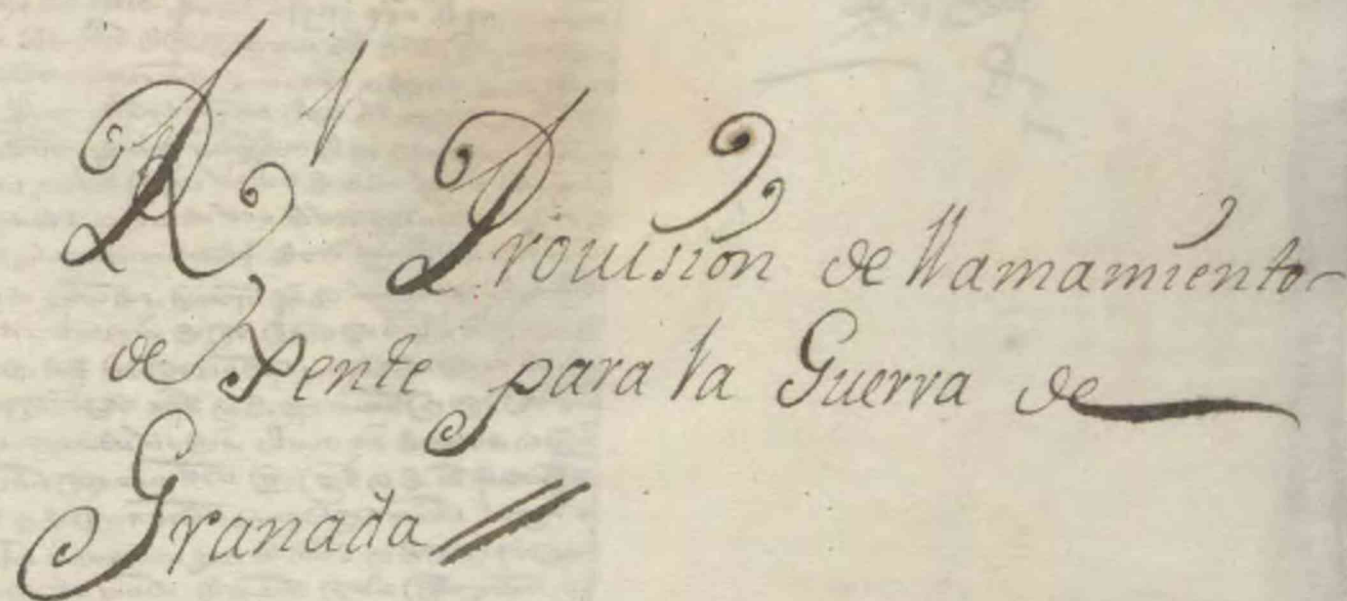 Rl Provision de llamamiento
de Xente para la Guerra de
Granada